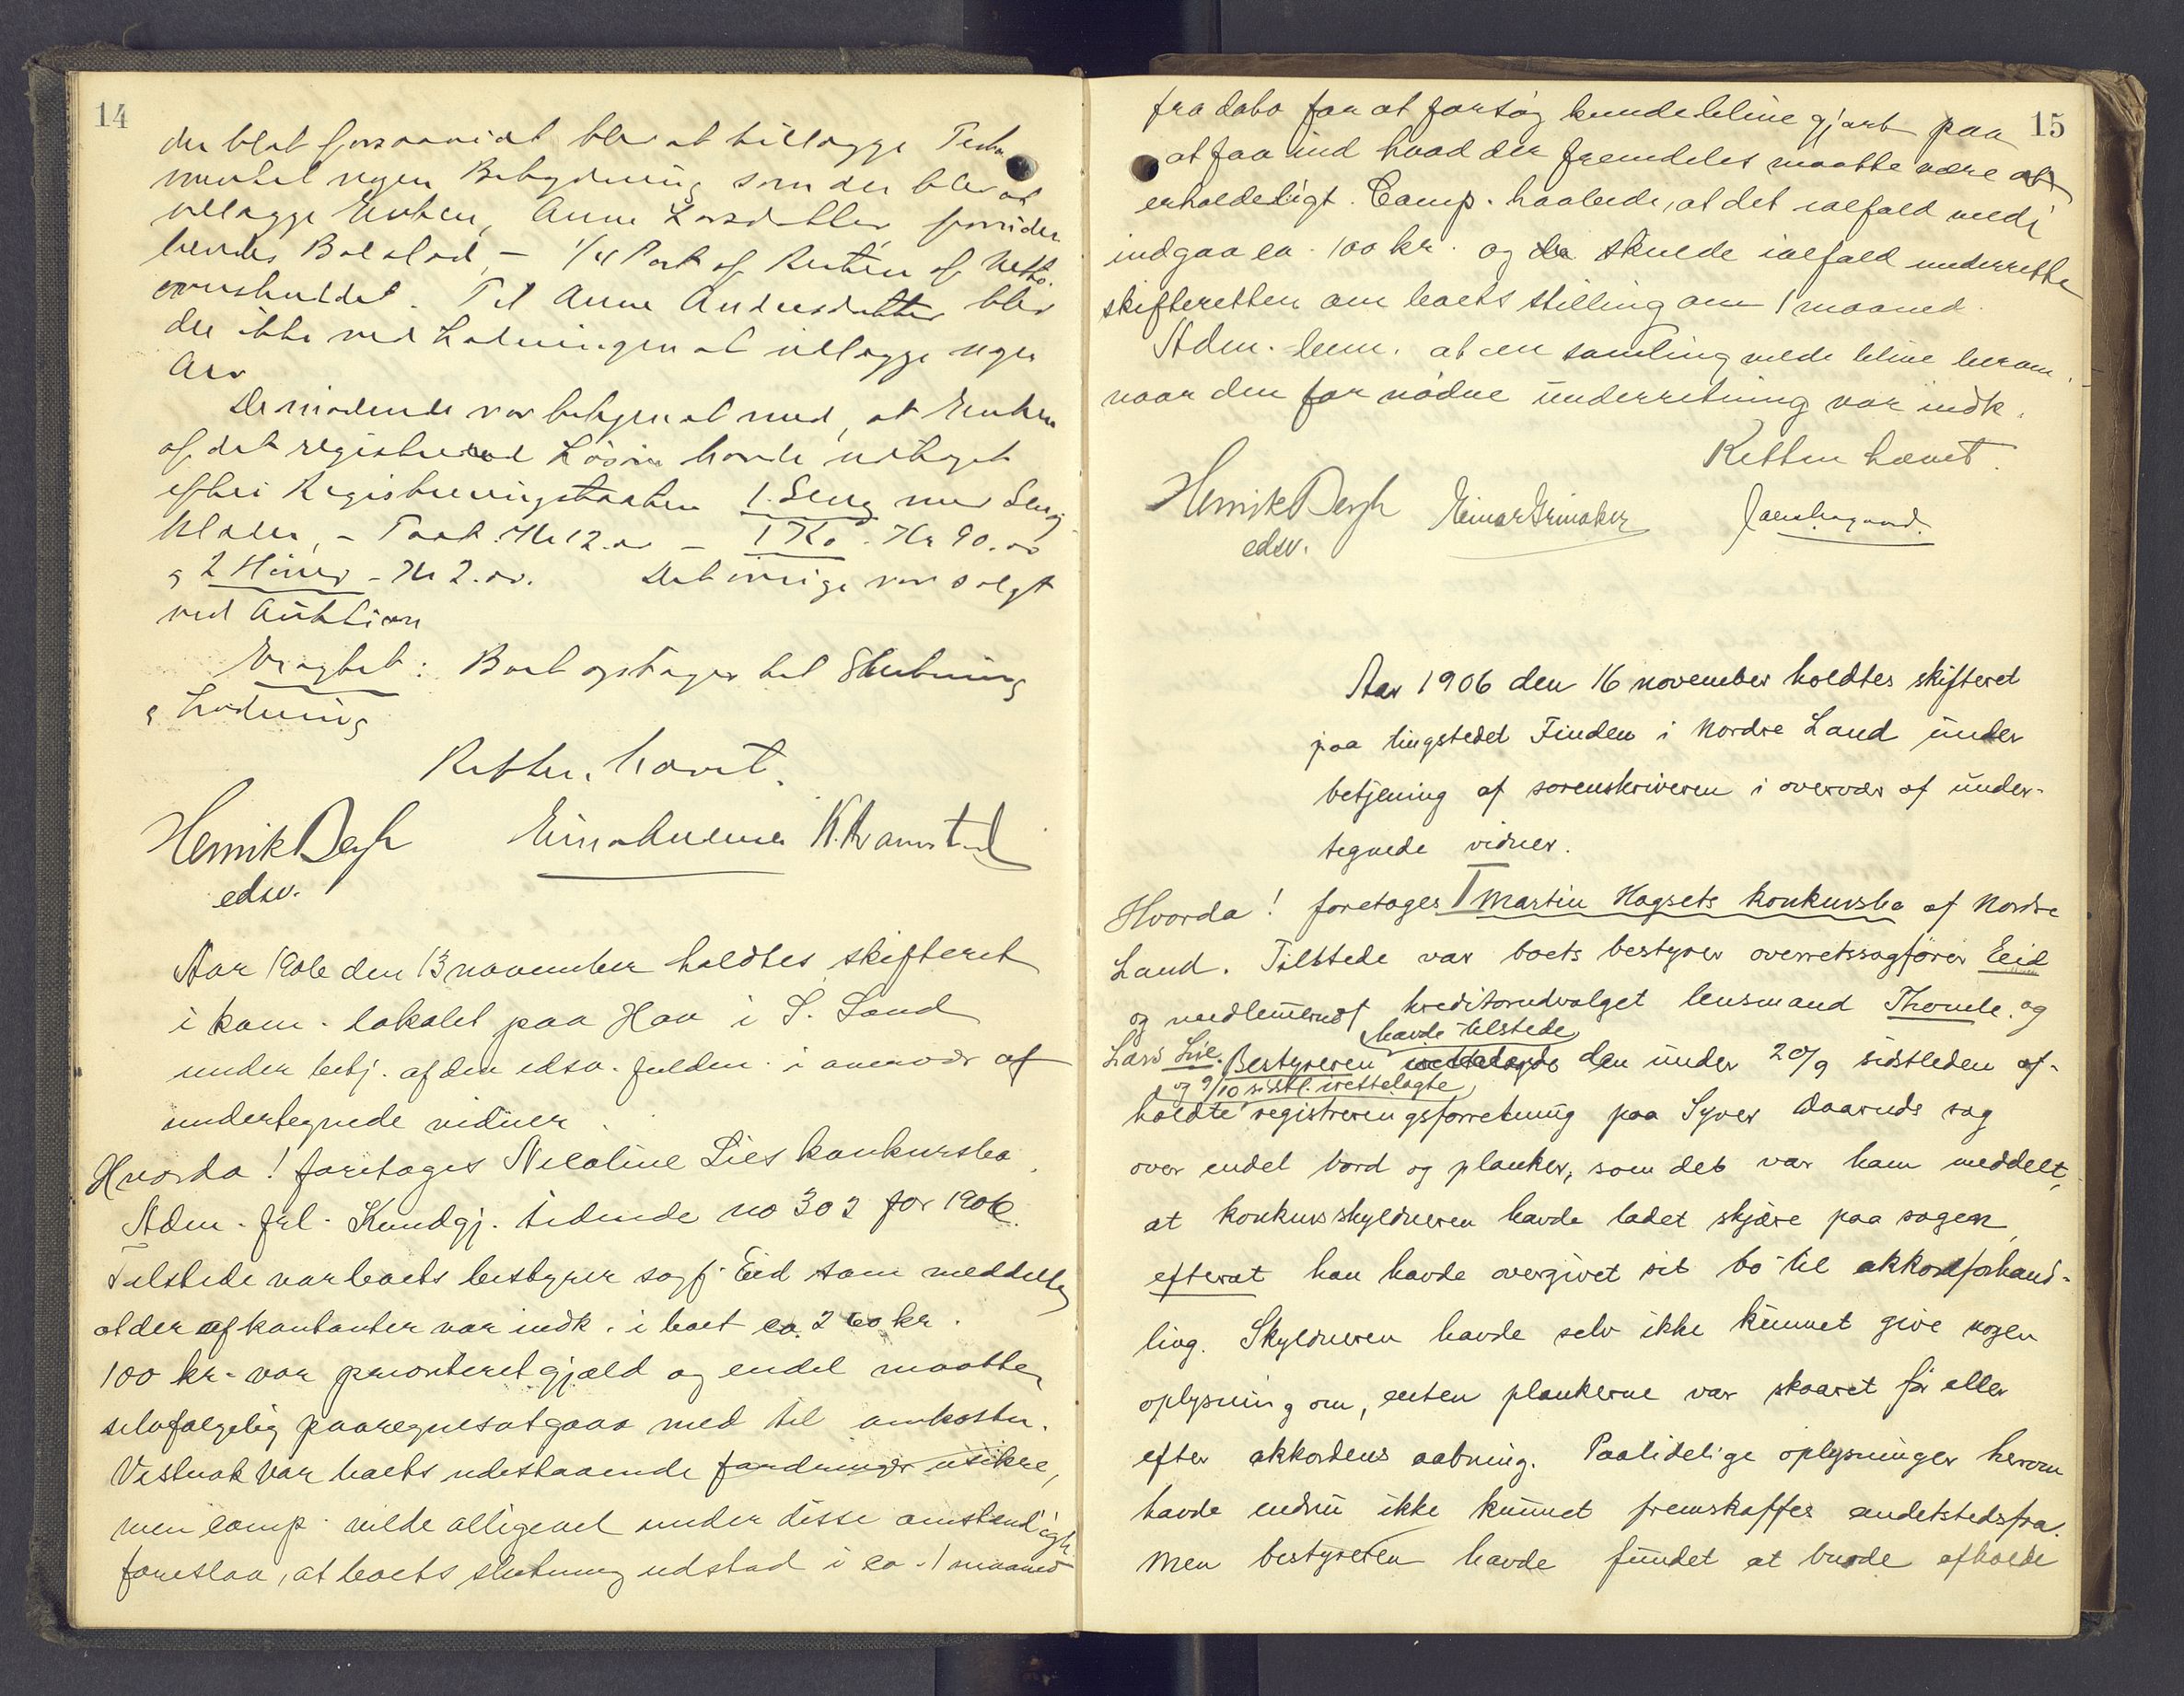 14
der blot forsaavidt blev at tillægge Testa
mentet nogen Betydning som der blev at
udlægge Enken, Anne Larsdatter foruden
hendes Boslod, - 1/4 Part af Resten af Netto.
overskuddet. Til Anne Andersdatter blev
der ikke ved Lodningen at udlægge nogen
Arv
De mødende var bekjendt med, at Enken
af det registrerede Løsøre havde udtaget
efter Registreringstaxten 1 Seng med Seng
klæder, - Taxt. Kr 12.00 - 1 Ko. Kr 90.00
og 2 Høner - Kr 2.00. Det øvrige var solgt
ved Auktion
Eragtet: Boet optages til Slutning
og Lodning
Retten hævet.
Henrik Bergh
edsv.
Aar 1906 den 13 november holdtes skifteret
i kom. lokalet paa Hov i S. Land
under betj. af den edsv. fuldm. i overvær af
undertegnede vidner.
Hvorda! foretages Nicoline Lies konkursbo.
Adm. frl. Kundgj. tidende no 302 for 1906.
Tilstede var boets bestyrer sagf. Eid som meddelte
at der af kontanter var indk. i boet ca. 260 kr.
100 kr. var prioriteret gjæld og endel maatte
selvfølgelig paaregnes at gaa med til omkostn.
Vistnok var boets udestaaende fordringer usikre,
men comp. vilde alligevel under disse omstændigh
foreslaa, at boets slutning udstod i ca. 1 maaned
15
fra dato for at forsøg kunde blive gjort paa
at faa ind hvad der fremdeles maatte være
erholdeligt. Comp. haabede, at det ialfald vilde
indgaa ca. 100 kr. og skulde ialfald underrette
skifteretten om boets stilling om 1 maaned.
Adm. bem. at en samling vilde blive beram.
naar den for nødne underretning var indk.
Retten hævet.
Henrik Bergh Einar Grinaker
edsv.
Aar 1906 den 16 november holdtes skifteret
paa tingstedet Finden i Nordre Land under
betjening af sorenskriveren i overvær af under-
tegnede vidner.
Hvorda! foretages I Martin Hagsets konkursbo af Nordre
Land. Tilstede var boets bestyrer overretssagfører Eid
og medlemerne af kreditorudvalget lensmand Thomle og
havde tilstede
Lars Lie. Bestyreren irettelagde den under 20/9 sidstleden af-
og 9/10 sidstl. irettelagte
holdte registreringsforretning paa Syver Daaruds sag
over endel bord og planker, som det var ham meddelt,
at konkursskyldneren havde ladet skjære paa sagen
efterat han havde overgivet sit bo til akkordforhand-
ling. Skyldneren havde selv ikke kunnet give nogen
oplysning om, enten plankerne var skaaret før eller
efter akkordens aabning. Paalidelige oplysninger herom
havde endnu ikke kunnet fremskaffes andetstedsfra.
Men bestyreren havde fundet at burde afholde